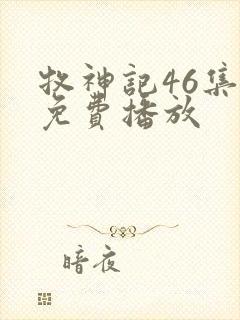 牧神記46集
免費播放
暗夜